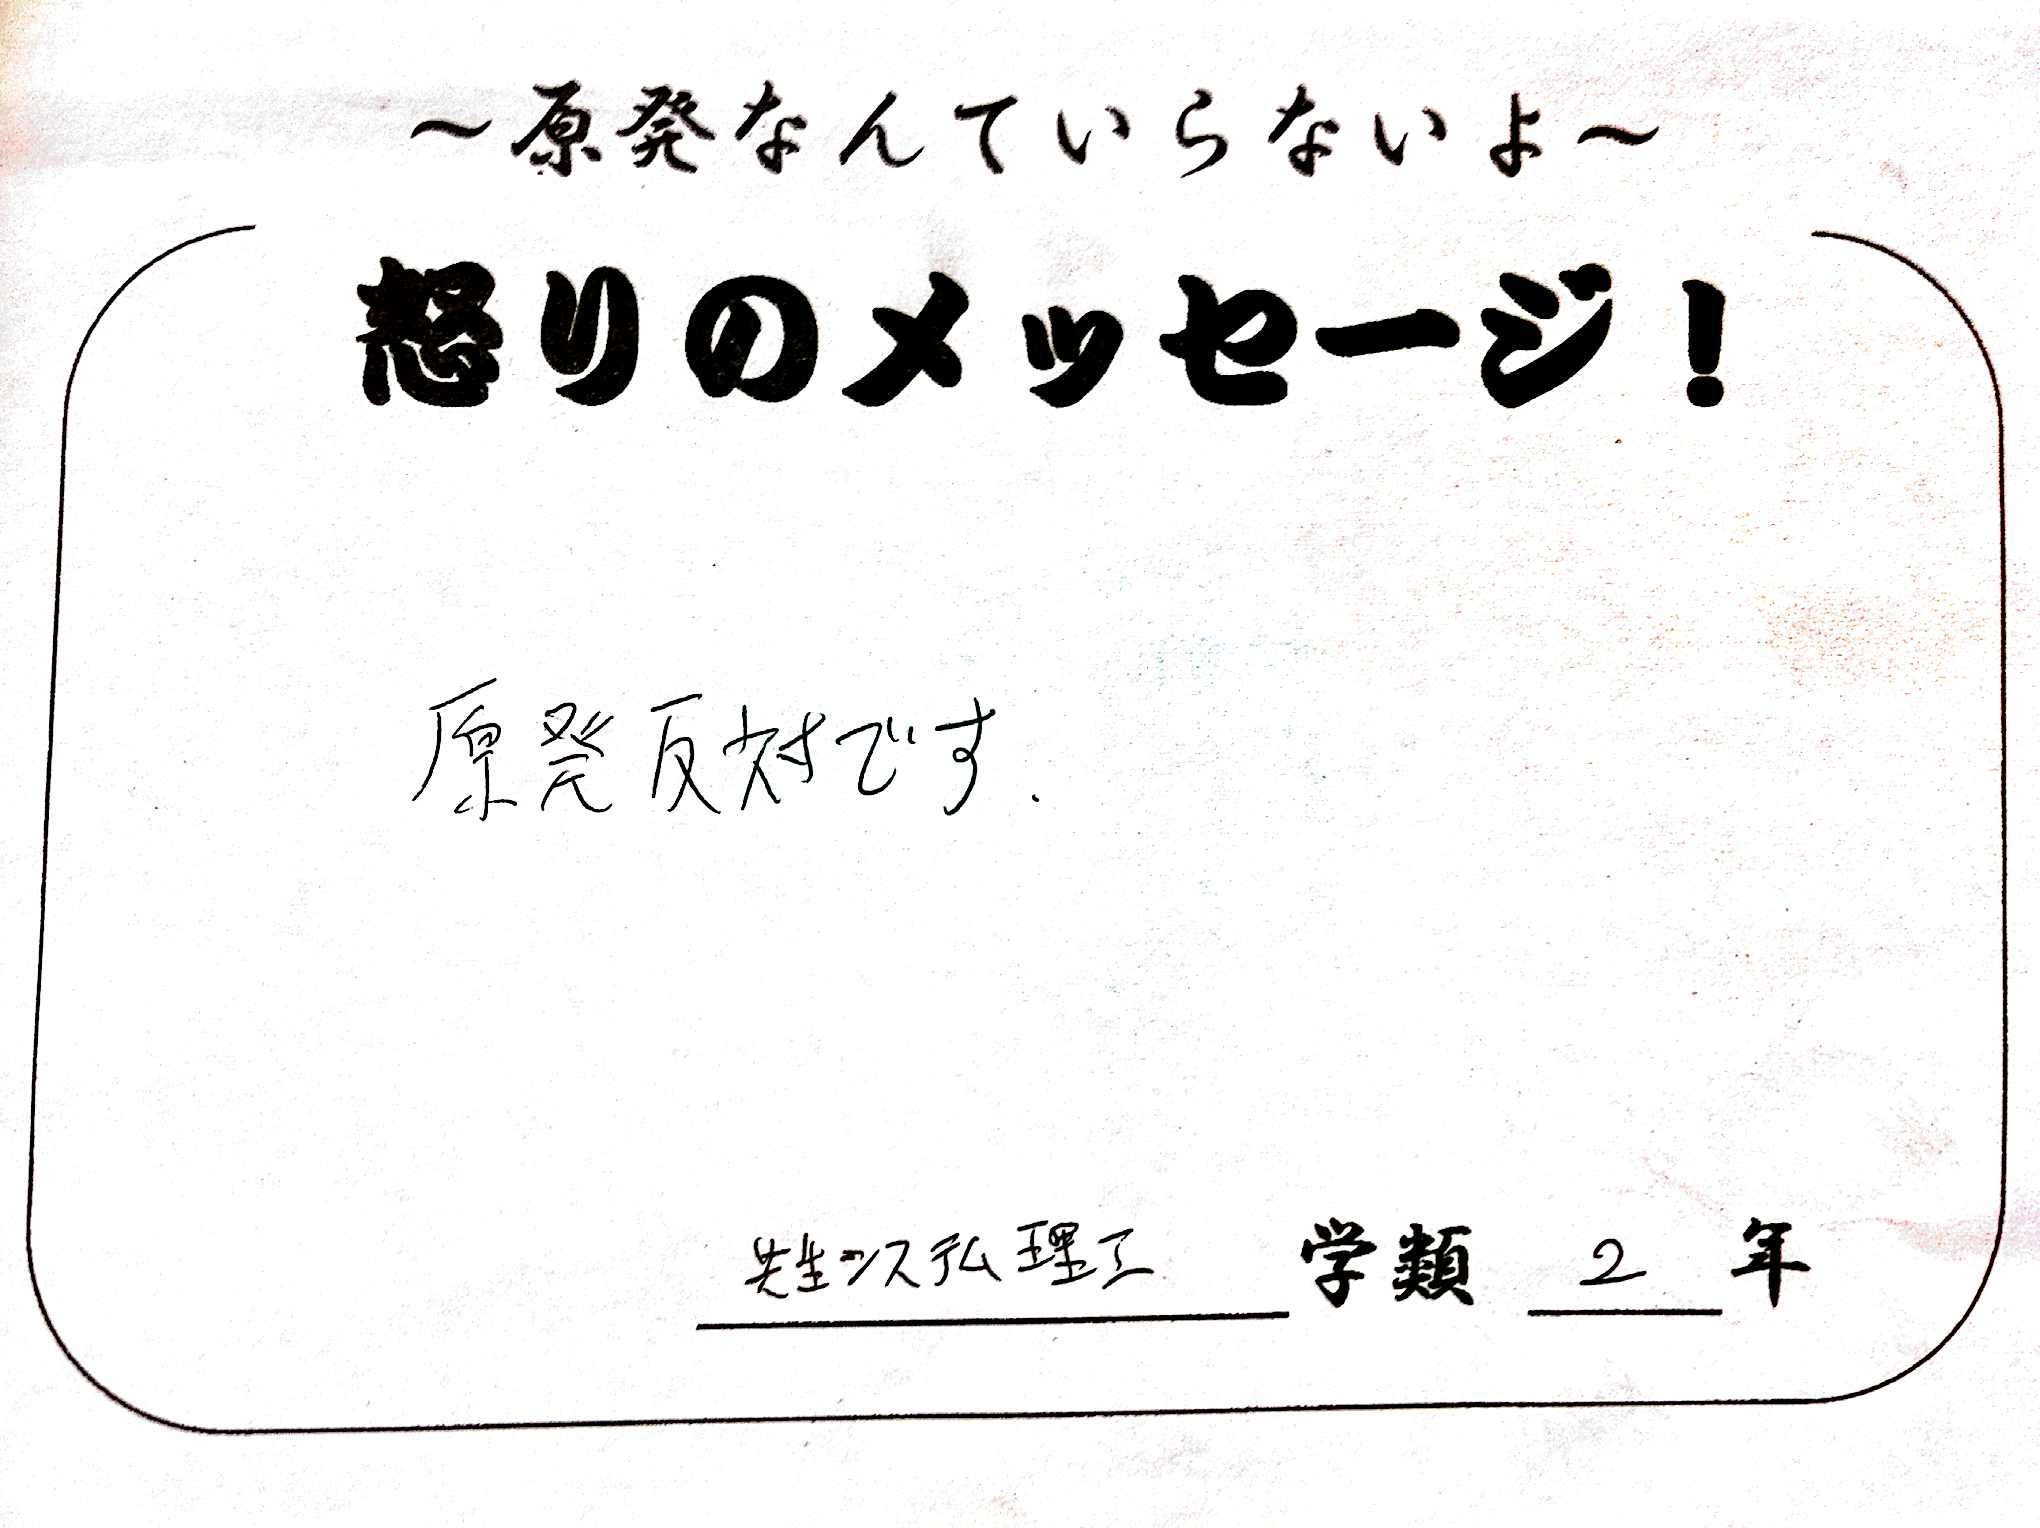 ～原発なんていらないよ～
怒りのメッセージ！
原発反対です.
先生システム理工 学類 2 年